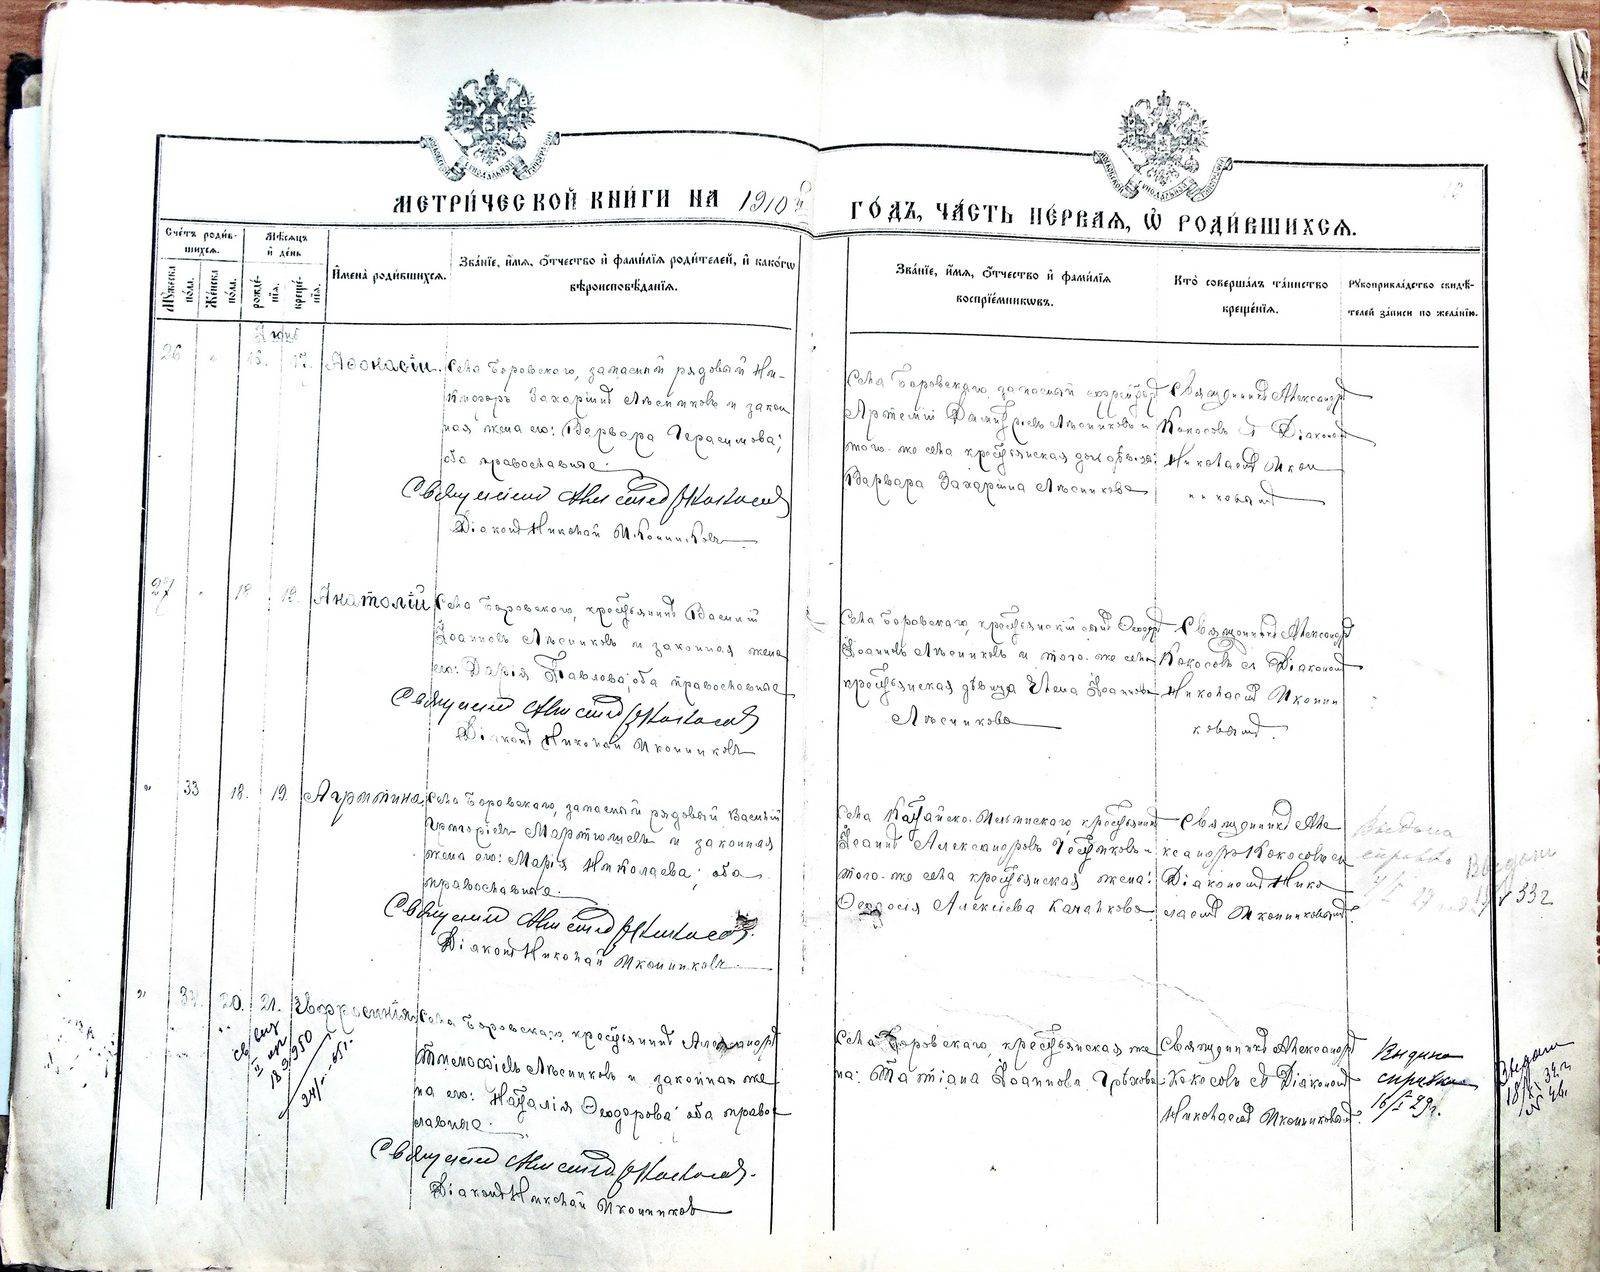 МЕТРИ́ЧЕСКОЙ КНИ́ГИ НА 1910 й ГО́ДЪ, ЧА́СТЬ ПЕ́РВАЯ, Ѡ РОДИ́ВШИХСЯ.
Сче́тъ роди́в-
шихся.
Мꙋ́жеска по́ла.
Же́нска по́ла.
Мѣ́сяцъ
и҆ де́нь
рожде́-
нїя.
креще́-
нїя.
И҆мена̀ роди́вшихся.
Зва́нїе, и҆́мя, ѻ҆́тчество и҆ фами́лїя роди́телей, и҆ како́гѡ
вѣроисповѣ́данїя.
Зва́нїе, и҆́мя, ѻ҆́тчество и҆ фами́лїя
воспрїе́мникѡвъ.
Кто̀ соверша́лъ та́инство
креще́нїя.
Рꙋкоприкла́дство свидѣ́-
телей за́писи по жела́нїю.
Іюнь
26 " 16. 17. Аѳонасій.
Села Боровского, запасный рядовый Ни-
Захаровъ Лѣсниковъ и закон
ная жена его: Варвара Герасимова;
оба православные.
Священникъ Александръ Кокосовъ
Діаконъ Николай Иконниковъ
Села Боровского, запасный ефрейторъ
Артемій Димитріевъ Лѣсниковъ и
того-же села крестьянская дочь дѣвица:
Варвара Захарова Лѣсникова
Священникъ Александръ
Кокосовъ съ Діакономъ
Николаемъ Икон
никовымъ
27 " 18 19. Анатолій
Села Боровского, крестьянинъ Василій
Іоанновъ Лѣсниковъ и законная жена
его: Дарія Павлова; оба православные
Священникъ Александръ Кокосовъ
Діаконъ Николай Иконниковъ
Села Боровского, крестьянскій сынъ Ѳеодоръ
Іоанновъ Лѣсниковъ и того-же села
крестьянская дѣвица Елена Іоаннова
Лѣсникова
Священникъ Александръ
Кокосовъ съ Діакономъ
Николаемъ Иконни
ковымъ.
" 33 18. 19. Агрипина
Села Боровского, запасный рядовый Василій
Григоріевъ Мартюшевъ и законная
жена его: Марія Николаева; оба
православные.
Священникъ Александръ Кокосовъ.
Діаконъ Николай Иконниковъ
Села Катайско-Ильинского, крестьянинъ
Іоаннъ Александровъ и
того-же села крестьянская жена:
Ѳеодосія Алексіева
Священникъ Але
ксандръ Кокосовъ съ
Діакономъ Нико
лаемъ Иконниковымъ.
Выдана
справка
Выдан
33 г.
" 34. 20. 21. Евфросинія
Села Боровского, крестьянинъ Александръ
Тимоѳіевъ Лѣсниковъ и законная же
на его: Наталія Ѳеодорова; оба право
славные.
Священникъ Александръ Кокосовъ.
Діаконъ Николай Иконниковъ
Села Боровского, крестьянская же
на: Татіана Іоаннова Грѣхова
Священникъ Александръ
Кокосовъ съ Діакономъ
Николаемъ Иконниковымъ.
Выдана
справка
16/I 29 г.
Выдан